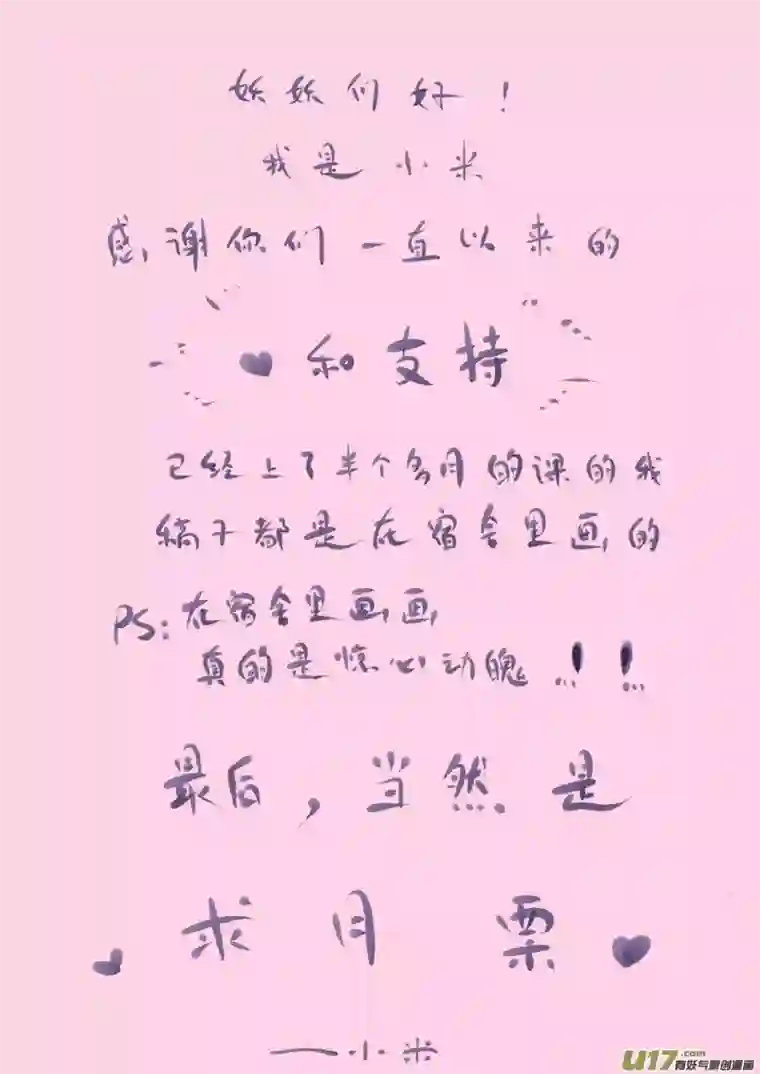 妖妖们好！
我是小米
感谢你们一直以来的
♥和支持
已经上了半个多月的课的我
稿子都是在宿舍里画的
PS:在宿舍里画画
真的是惊心动魄！！
最后，当然是
求月票♥
——小米
U17.com
有妖气原创漫画